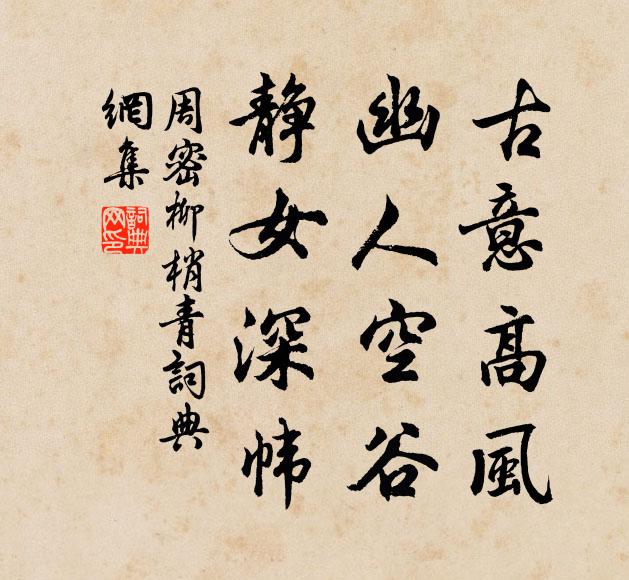 古意高風
幽人空谷
静女深帏
周密柳梢青詞典
網集
詞典
网印